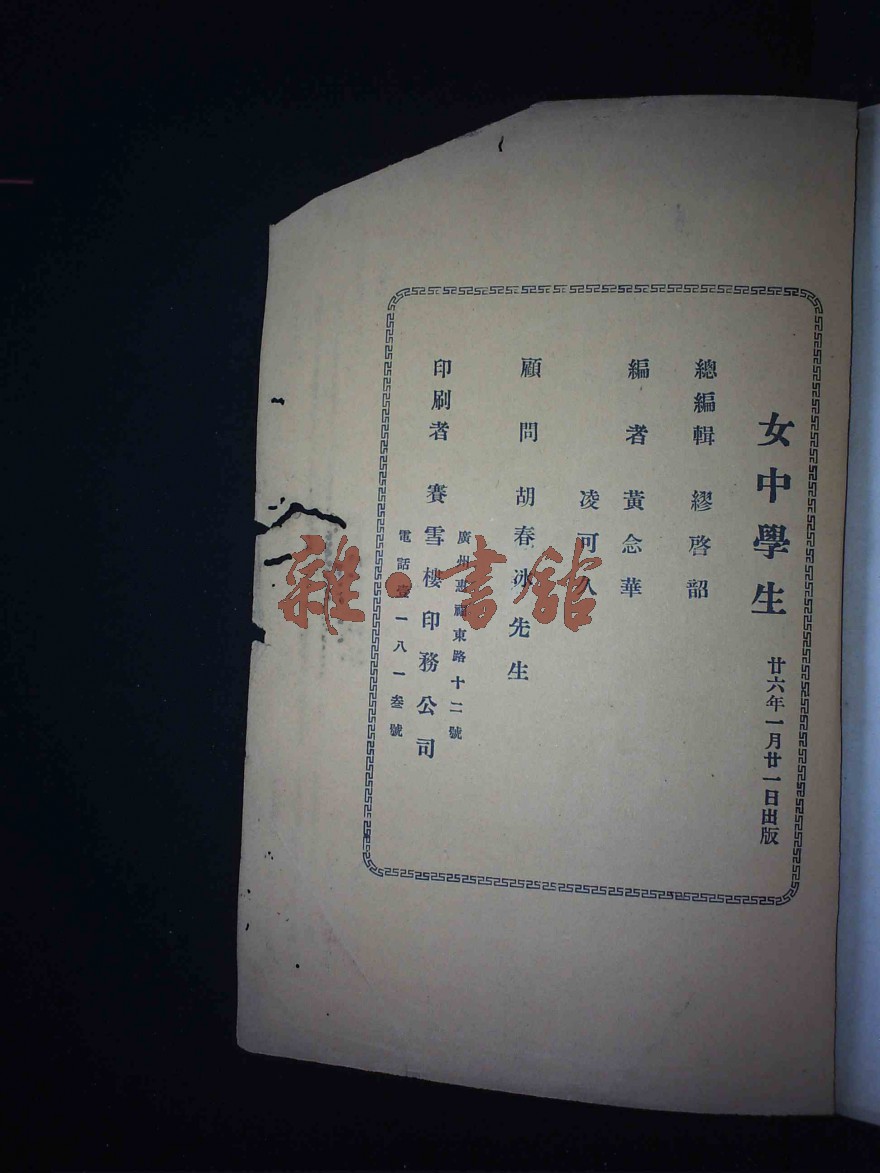 女中學生 廿六年一月廿一日出版
總編輯 繆啓韶
編者 黃念華
凌可久
顧問 胡春冰先生
印刷者 賽雪樓印務公司
廣州惠福東路十二號
電話壹一八一叁號
雜·書館